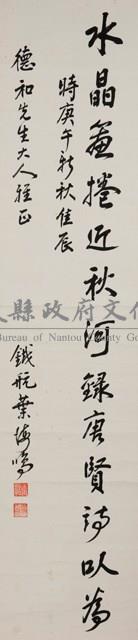 水晶簾捲近秋河錄唐賢詩以為
德和先生大人雅正
時庚午新秋佳辰
鐵舼葉海鳴
縣政府文化
Bureau of Nantou County Go